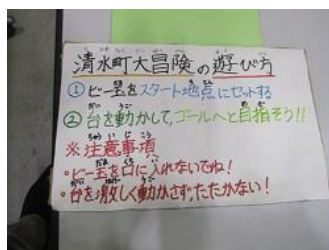 清水町大冒険の遊び方
①ビー玉をスタート地点にセットする
②台を動かして,ゴールへと目指そう!!
※注意事項
・ビー玉を口に入れないでね!
・台を激しく動かさず,たたかない!